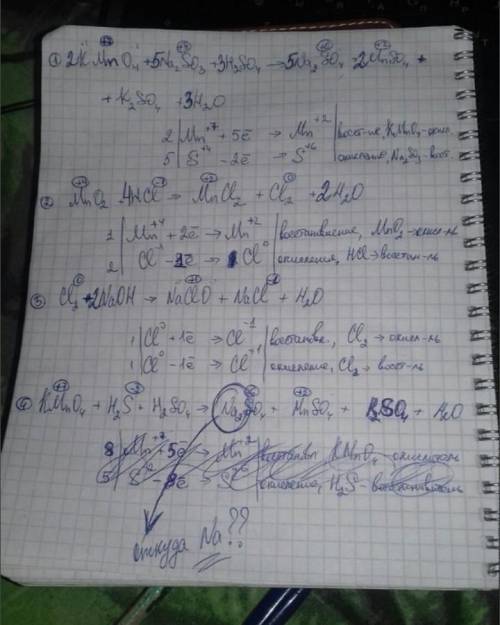 ① 2KMnO₄ + 5Na₂SO₃ + 3H₂SO₄ → 5Na₂SO₄ + 2MnSO₄ +
+ K₂SO₄ + 3H₂O
2 | Mn⁺⁷ + 5ē → Mn⁺² | восст-ие, KMnO₄-окисл.
5 | S⁺⁴ - 2ē → S⁺⁶ | окисление, Na₂SO₃-восст.
② MnO₂ 4HCl → MnCl₂ + Cl₂ + 2H₂O
1 | Mn⁺⁴ + 2ē → Mn⁺² | восстановление, MnO₂-окисл-ль
2 | Cl⁻¹ - 1ē → 1Cl⁰ | окисление, HCl → восстан-ль
③ Cl₂ + 2NaOH → NaClO + NaCl + H₂O
1 | Cl⁰ + 1ē → Cl⁻¹ | восстановл., Cl₂ → окисл-ль
1 | Cl⁰ - 1ē → Cl⁺¹ | окисление, Cl₂ → восст-ль
④ KMnO₄ + H₂S + H₂SO₄ → Na₂SO₄ + MnSO₄ + K₂SO₄ + H₂O
8 | Mn⁺⁷ + 5ē → Mn⁺² | KMnO₄ - окислитель
5 | S⁻² - 8ē → S⁺⁶ | окисление, H₂S - восстановитель
откуда Na??